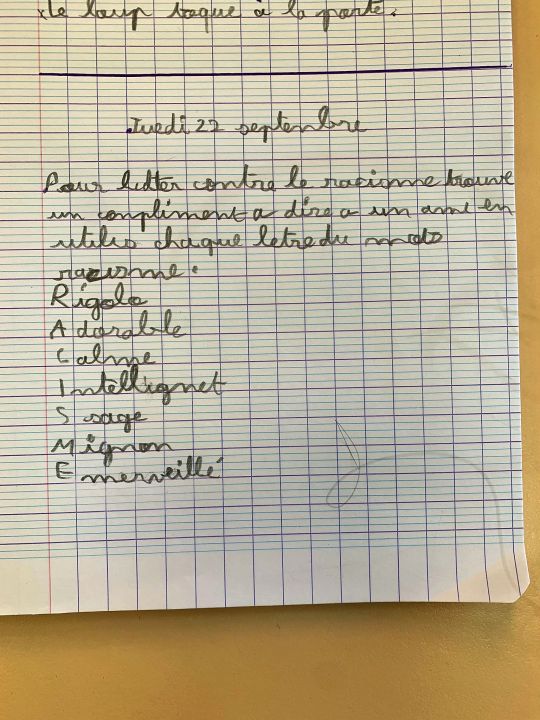 x le loup toque à la porte.
Juedi 22 septembre
Pour lutter contre le racisme trouve
un compliment a dire a un ami en
utilis chaque letre du mots
racisme.
Rigolo
Adorable
Calme
Intellignet
S sage
Mignon
Emerveillé